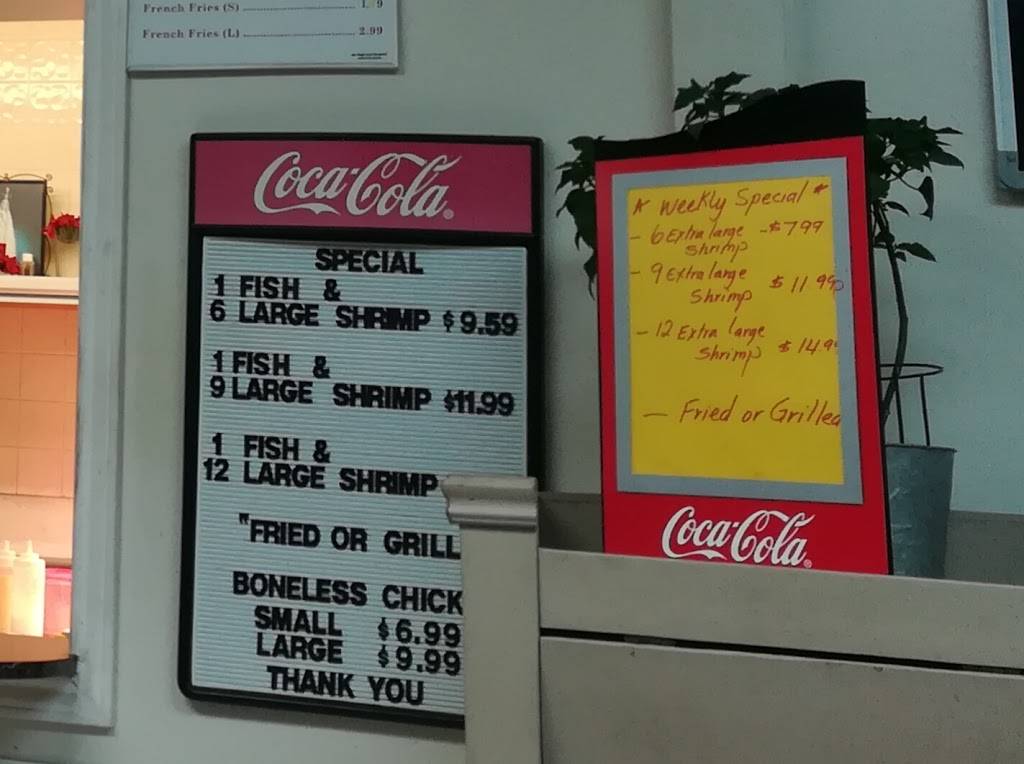 French Fries (S)
French Fries (L) 2.99
Coca-Cola
SPECIAL
1 FISH &
6 LARGE SHRIMP $9.59
1 FISH &
9 LARGE SHRIMP $11.99
1 FISH &
12 LARGE SHRIMP
"FRIED OR GRILL
BONELESS CHICK
SMALL $6.99
LARGE $9.99
THANK YOU
* Weekly Special *
- 6 Extra large - $7.99
Shrimp
- 9 Extra large
Shrimp $11.99
- 12 Extra large
Shrimp $14.9
- Fried or Grilled
Coca-Cola